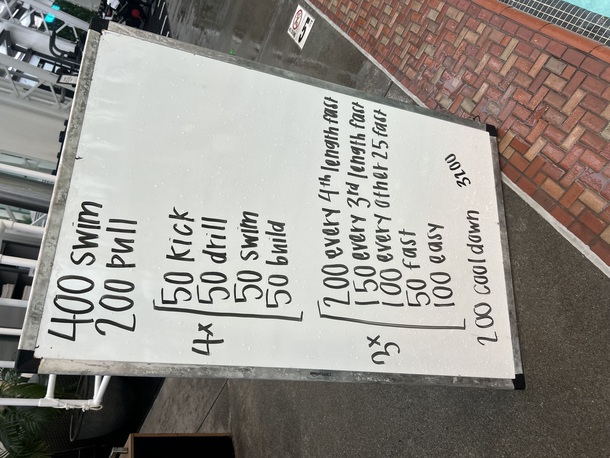 400 swim
200 pull
4x
50 kick
50 drill
50 swim
50 build
3x
200 every 4th length fast
150 every 3rd length fast
100 every other 25 fast
50 fast
100 easy
3200
200 cool down
5